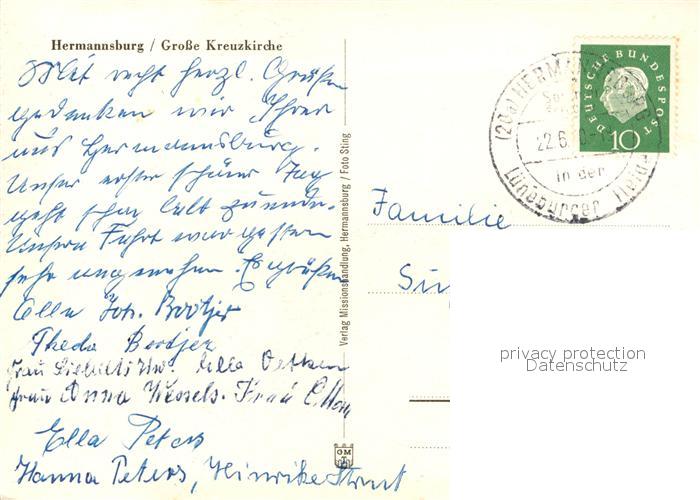 Hermannsburg / Große Kreuzkirche
Mit recht herzl. Grüßen
gedenken wir Ihrer
aus Hermannsburg.
Unser erster schöner Tag
geht schon bald zuende.
Unsere Fahrt war gestern
sehr angenehm. Es grüßen
Ella Joh. Bootjer
Theda Bootjer
Frau Ella Oetken
Frau Anna Wessels. Frau
Ella Peters
Hanna Peters, Hinrike Strut
Verlag Missionshandlung, Hermannsburg / Foto Sting
GM
DEUTSCHE BUNDESPOST
10
(20a) HERMANNSBURG
22.6.
in der
Lüneburger Heide
Familie
privacy protection
Datenschutz